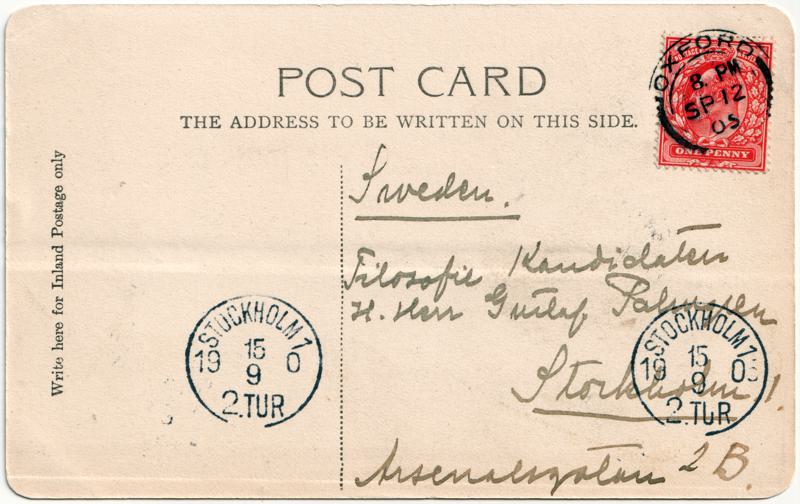 POST CARD
THE ADDRESS TO BE WRITTEN ON THIS SIDE.
Write here for Inland Postage only
OXFORD
8. PM
SP 12
03
ONE PENNY
Sweden.
Filosofie Kandidaten
H. Herr Gustaf
Stockholm 1.
Arsenalsgatan 2 B.
STOCKHOLM 1
19 15 0
9
2.TUR
STOCKHOLM 1
19 15 03
9
2.TUR